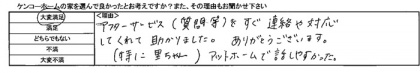 ケンコーホームの家を選んで良かったとお考えですか？また、その理由もお聞かせ下さい
大変満足
満足
どちらでもない
不満
大変不満
<理由>
アフターサービス（質問等）をすぐ連絡や対応
してくれて助かりました。ありがとうございます。
（特に 黒ちゃん）アットホームで話しやすかった。